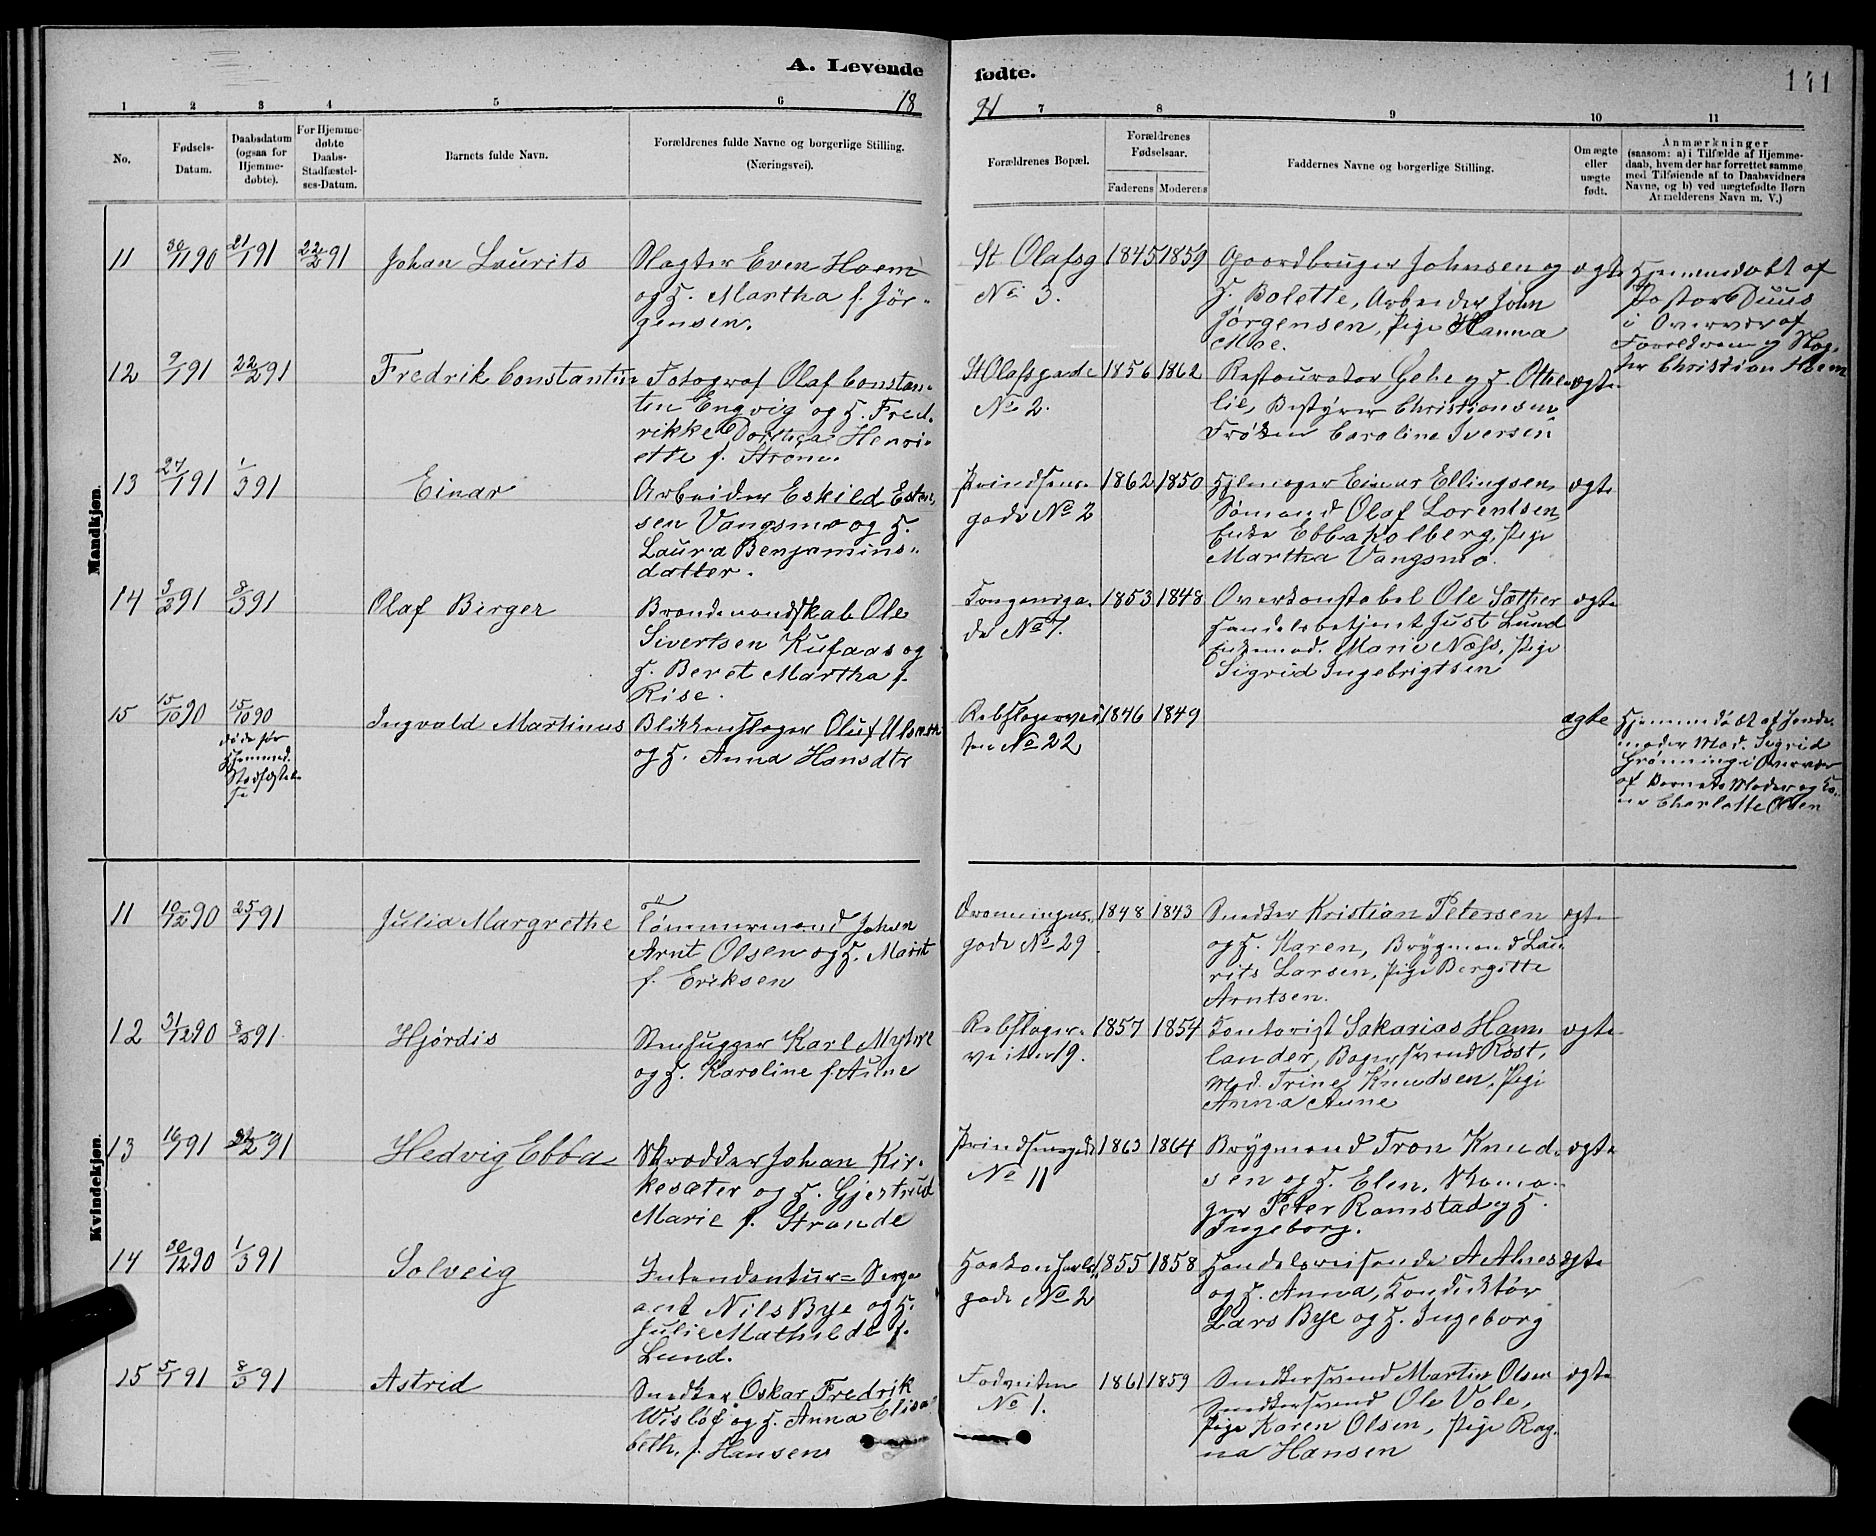 A. Levende
fødte.
141
18
91
1 2 3 4 5 6 7 8 9 10 11
No.
Fødsels-
Datum.
Daabsdatum
(ogsaa for
Hjemme-
døbte).
For Hjemme-
døbte
Daabs-
Stadfæstel-
ses-Datum.
Barnets fulde Navn.
Forældrenes fulde Navne og borgerlige Stilling.
(Næringsvei).
Forældrenes Bopæl.
Forældrenes
Fødselsaar.
Faderens Moderens
Faddernes Navne og borgerlige Stilling.
Om ægte
eller
uægte
født.
Anmærkninger
(saasom: a) i Tilfælde af Hjemme-
daab, hvem der har forrettet samme
med Tilføiende af to Daabsvidners
Navne, og b) ved uægtefødte Børn
Anmelderens Navn m. V.)
Mandkjøn.
11 30/11 90 21/1 91 22/2 91 Johan Laurits
Slagter Even Hoem
og H. Martha f. Jør-
gensen.
St Olafsg
No 3.
1845 1859
Gaardbruger Johnsen og
H. Bolette, Arbeider John
Jørgensen, Pige Hanna
Moe.
ægte
Hjemmedøbt af
Pastor Duus
i Overvær af
Forældrene og Slag-
ter Christian Hoem
12 9/1 91 22/2 91 Fredrik Constantin
Fotograf Olaf Constan-
tin Engvig og H. Fred-
rikke Dorthea Henri-
ette f. Strøm.
St Olafsgade
No 2.
1856 1862
Restauratør Gehe og H. Otthe-
lie, Bestyrer Christiansen
Frøken Caroline Iversen
ægte
13 27/1 91 1/3 91 Einar
Arbeider Eskild Esten-
sen Vangsmo og H.
Laura Benjamins-
datter.
Prindsens-
gade No 2
1862 1850
Hjulmager Einar Ellingsen
Sømand Olaf Lorentsen
Enke Ebba Kolberg, Pige
Martha Vangsmo.
ægte
14 3/2 91 8/3 91 Olaf Birger
Brandmandskab Ole
Sivertsen Kufaas og
H. Beret Martha f.
Rise.
Kongensga-
de No 7.
1853 1848
Overkonstabel Ole Sæther
Handelsbetjent Just Lund
Enkemad. Marie Næss, Pige
Sigrid Ingebrigtsen
ægte
15 15/10 90 15/10 90
døde før
Hjemmed.
Stadfæstel-
se
Ingvald Martinus
Blikkenslager Oluf
og H. Anna Hansdtr
Rebslagervei-
ten No 22
1846 1849
ægte
Hjemmedøbt af Jorde-
moder Mad. Sigrid
Grønning i Overvær
af Barnets Moder og Ko-
ne Charlotte Olsen
Kvindekjøn.
11 10/12 90 25/1 91 Julia Margrethe
Tømmermand Johan
Arnt Olsen og H. Marit
f. Eriksen
Dronningens-
gade No 29
1848 1843
Snedker Kristian Petersen
og H. Karen, Brygmand Lau-
rits Larsen, Pige Bergitte
Arntsen.
ægte
12 31/12 90 8/2 91 Hjørdis
Stenhugger Karl Myhre
og H. Karoline f. Aune
Rebslager-
veiten 19.
1857 1854
Kontorist Sakarias Ham-
lander, Bagersvend Røst,
Mad. Trine Knudsen, Pige
Anna Aune
ægte
13 16/1 91 22/2 91 Hedvig Ebba
Skrædder Johan Kir-
kesæter og H. Gjertrud
Marie f. Strande
Prindsensgade
No 11
1863 1864
Brygmand Tron Knud-
sen og H. Elen, Skoma-
ger Peter Ramstad og H.
Ingeborg.
ægte
14 30/12 90 1/3 91 Solveig
Intendentur=Serge-
ant Nils Bye og H.
Julie Mathilde f.
Lund.
Haakon Jarls
gade No 2
1855 1858
Handelsreisende A Alnes
og H. Anna, Konduktør
Lars Bye og H. Ingeborg
ægte
15 5/1 91 8/3 91 Astrid
Snedker Oskar Fredrik
Wisløf og H. Anna Elisa-
beth, f. Hansen
Fodveiten
No 1.
1861 1859
Snedkersvend Martin Olsen
Snedkersvend Ole Vole,
Pige Karen Olsen, Pige Rag-
na Hansen
ægte